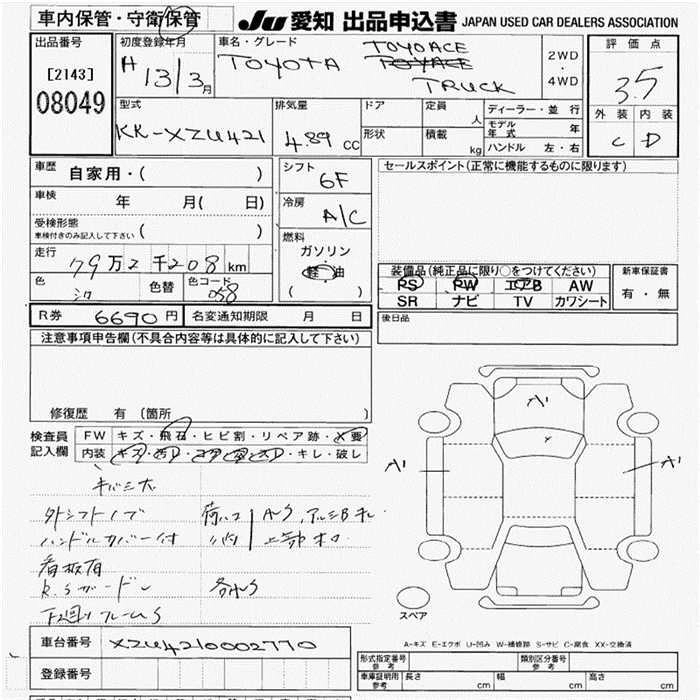 車内保管・守衛保管
JU 愛知 出品申込書 JAPAN USED CAR DEALERS ASSOCIATION
出品番号
[2143]
08049
初度登録年月
H 13/3月
車名・グレード
TOYOTA
TOYOACE
TRUCK
2WD
・
4WD
評価点
3.5
外装 内装
C D
型式
KK-XZU421
排気量
4.89 CC
ドア
形状
定員
人
積載
kg
ディーラー・並行
モデル年式 年
ハンドル 左・右
車歴
自家用・( )
車検
年 月( 日)
受検形態
車検付きのみ記入して下さい ( )
走行
79万2千208km
色
シロ
色替
色コード
058
シフト
6F
冷房
A/C
燃料
ガソリン
・
軽油
( )
セールスポイント(正常に機能するものに限ります)
装備品(純正品に限り○をつけてください)
PS PW エアB AW
SR ナビ TV カワシート
新車保証書
有・無
後日品
R券 6690円 名変通知期限 月 日
注意事項申告欄(不具合内容等は具体的に記入して下さい)
修復歴 有 (箇所 )
検査員
記入欄
FW キズ・飛石・ヒビ割・リペア跡・X要
内装 キズ・汚レ・コゲ・穴・スレ・キレ・破レ
キバミ大
外シフトノブ
ハンドルカバー付
看板有
下廻りフレームS
A'
A'
A'
スペア
A-キズ E-エクボ U-凹み W-補修跡 S-サビ C-腐食 XX-交換済
車台番号 XZU4210002770
登録番号
形式指定番号
参考
類別区分番号
参考
車庫証明用
参考
長さ cm 幅 cm 高さ cm